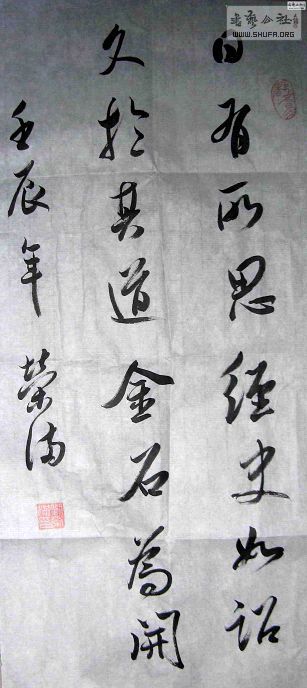 日有所思經史如詔
久於其道金石為開
壬辰年 榮满
书艺公社
WWW.SHUFA.ORG